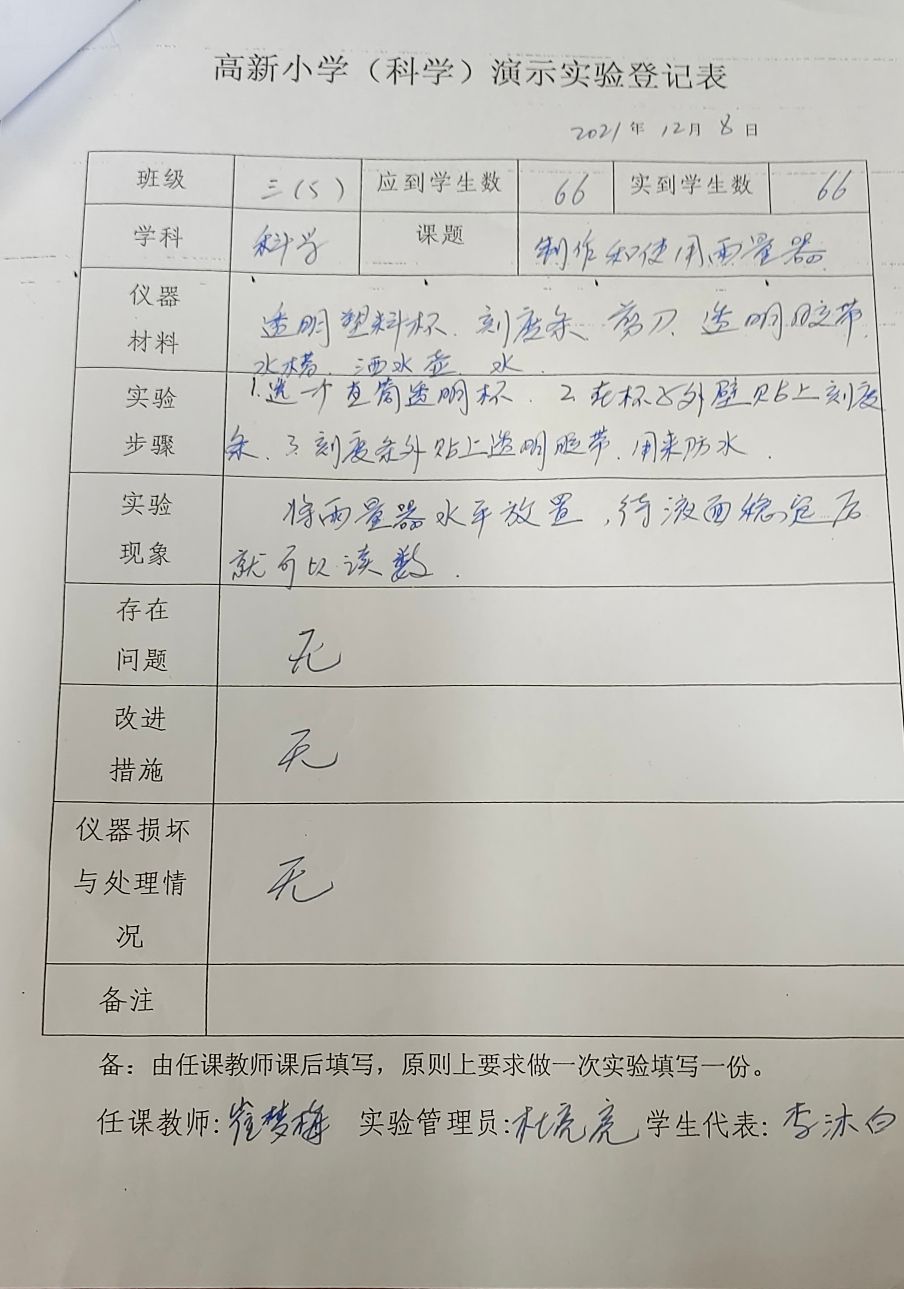 高新小学（科学）演示实验登记表
2021年 12月 8日
班级 三(5) 应到学生数 66 实到学生数 66
学科 科学 课题 制作和使用雨量器
仪器材料 透明塑料杯、刻度条、剪刀、透明胶带
水槽、洒水壶、水.
实验步骤 1.选一个直筒透明杯. 2.在杯子外壁贴上刻度
条. 3.刻度条外贴上透明胶带,用来防水.
实验现象 将雨量器水平放置,待液面稳定后
就可以读数.
存在问题 无
改进措施 无
仪器损坏与处理情况 无
备注
备：由任课教师课后填写，原则上要求做一次实验填写一份。
任课教师:崔梦梅 实验管理员:杜亮亮 学生代表:李沐白